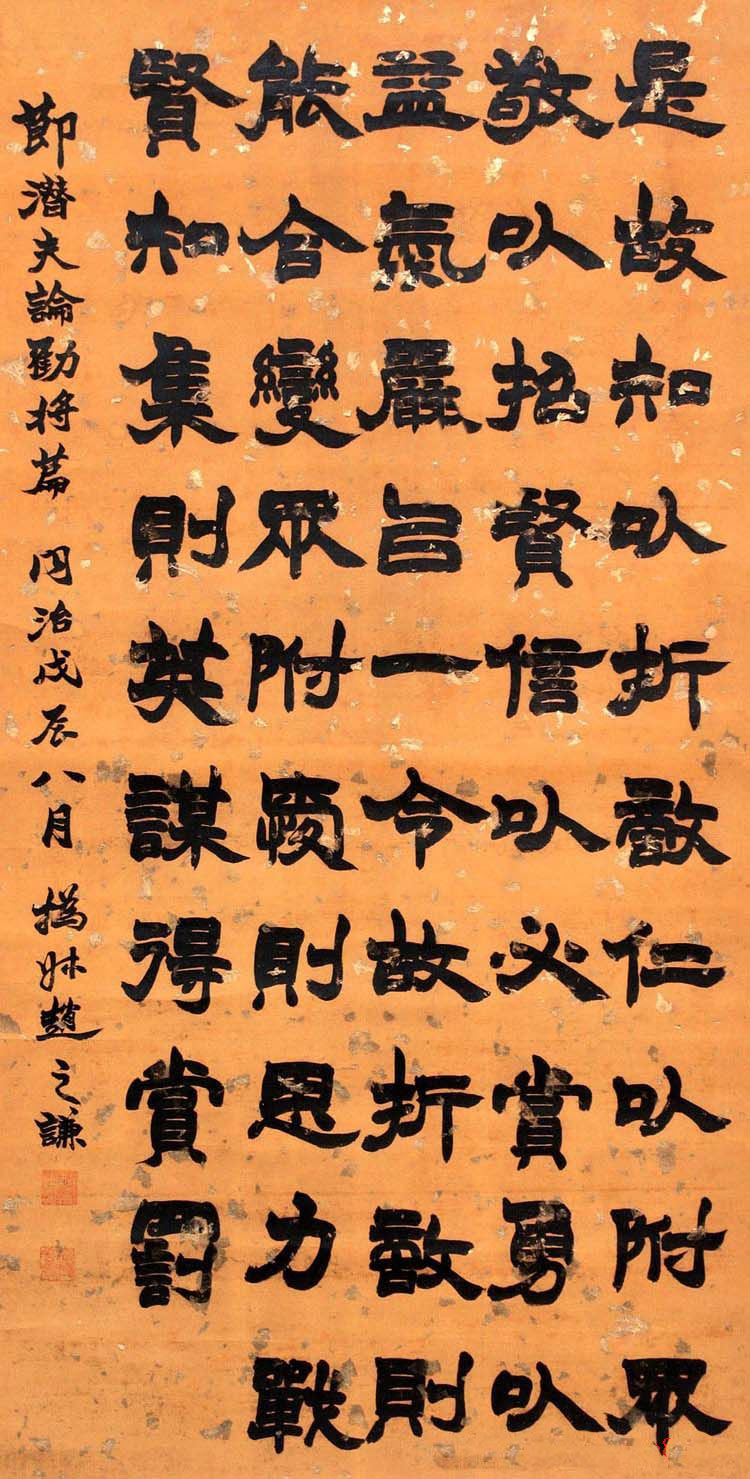 是故知以折敵仁以附眾
敬以招賢信以必賞勇以
益氣嚴㠯一令故折敵則
能合變眾附愛則思力戰
賢知集則英謀得賞罰
節潛夫論勸將篇 同治戊辰八月 撝叔趙之謙